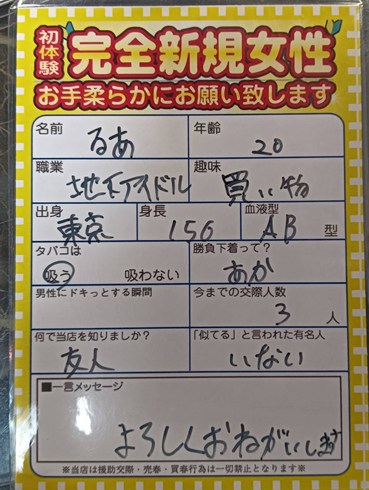 初体験
完全新規女性
お手柔らかにお願い致します
名前 るあ 年齢 20
職業 地下アイドル 趣味 買い物
出身 東京 身長 156 血液型 AB 型
タバコは 吸う 吸わない 勝負下着って? あか
男性にドキっとする瞬間 今までの交際人数 3 人
何で当店を知りましたか? 友人 「似てる」と言われた有名人 いない
■一言メッセージ
よろしくおねがいします
※当店は援助交際・売春・買春行為は一切禁止となります※